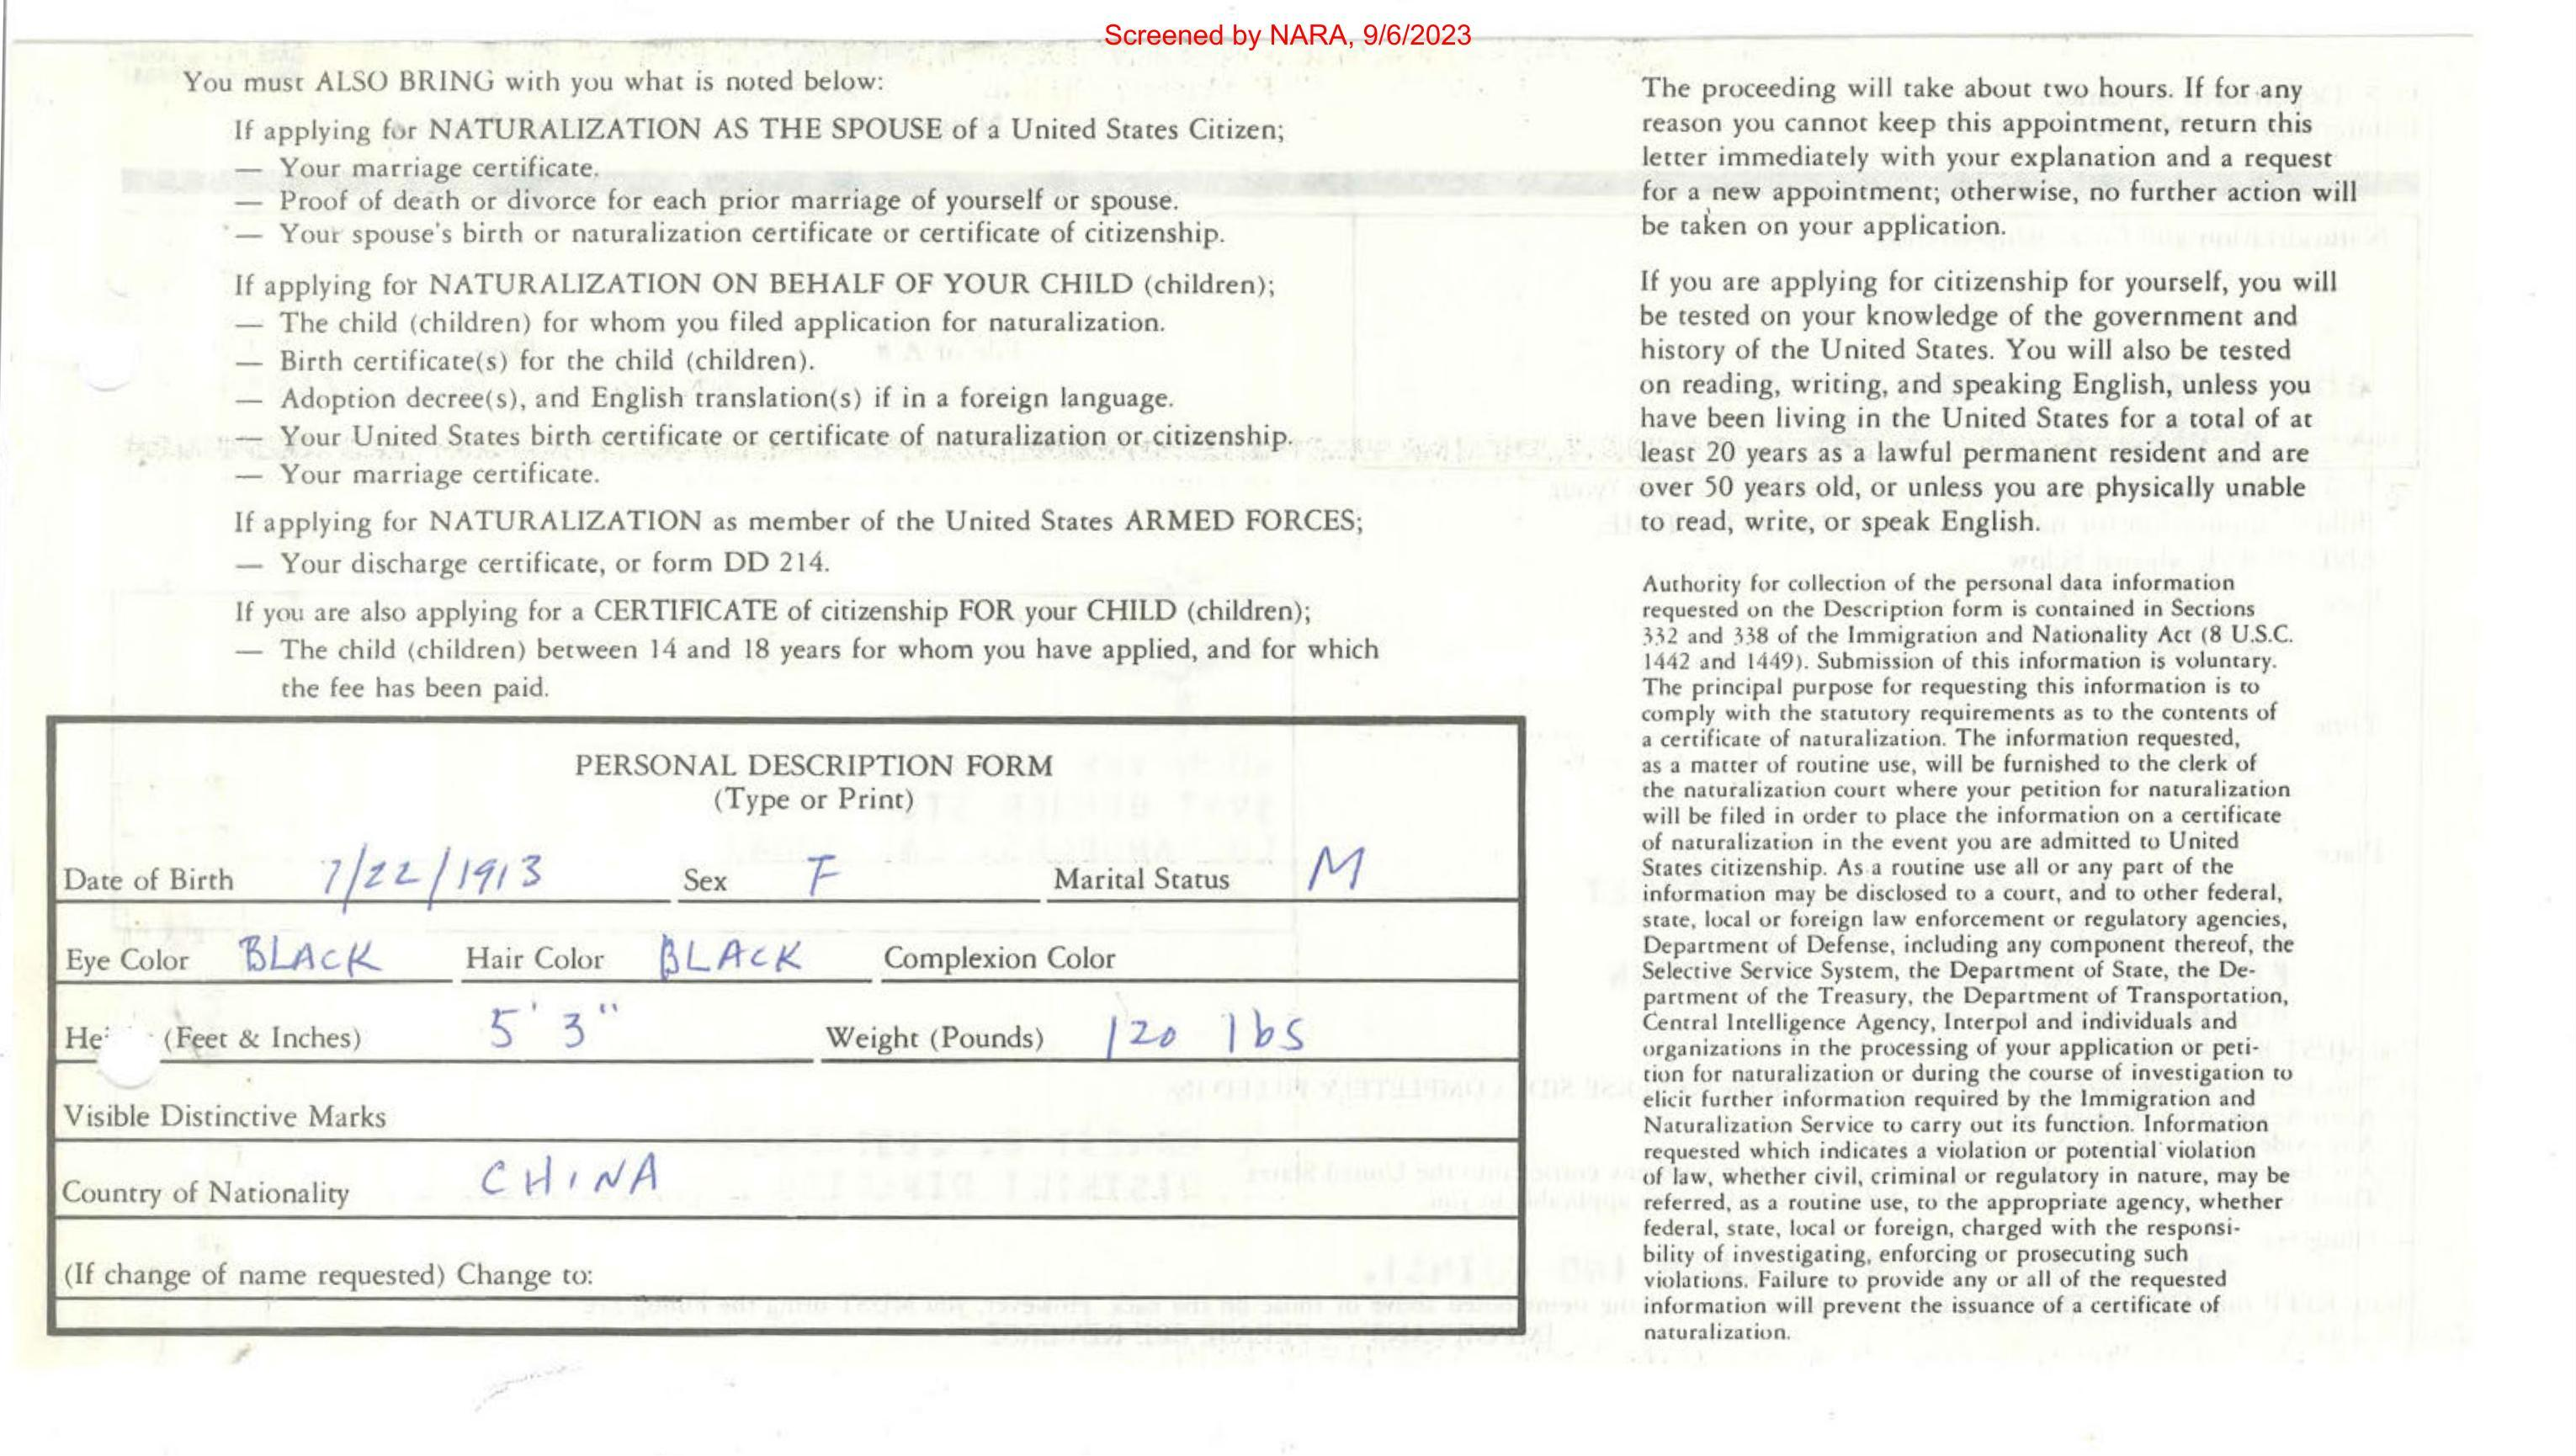 Screened by NARA, 9/6/2023
You must ALSO BRING with you what is noted below:
If applying for NATURALIZATION AS THE SPOUSE of a United States Citizen;
— Your marriage certificate.
— Proof of death or divorce for each prior marriage of yourself or spouse.
— Your spouse's birth or naturalization certificate or certificate of citizenship.
If applying for NATURALIZATION ON BEHALF OF YOUR CHILD (children);
— The child (children) for whom you filed application for naturalization.
— Birth certificate(s) for the child (children).
— Adoption decree(s), and English translation(s) if in a foreign language.
— Your United States birth certificate or certificate of naturalization or citizenship.
— Your marriage certificate.
If applying for NATURALIZATION as member of the United States ARMED FORCES;
— Your discharge certificate, or form DD 214.
If you are also applying for a CERTIFICATE of citizenship FOR your CHILD (children);
— The child (children) between 14 and 18 years for whom you have applied, and for which
the fee has been paid.
PERSONAL DESCRIPTION FORM
(Type or Print)
Date of Birth 7/22/1913 Sex F Marital Status M
Eye Color BLACK Hair Color BLACK Complexion Color
(Feet & Inches) 5' 3" Weight (Pounds) 120 lbs
Visible Distinctive Marks
Country of Nationality CHINA
(If change of name requested) Change to:
The proceeding will take about two hours. If for any
reason you cannot keep this appointment, return this
letter immediately with your explanation and a request
for a new appointment; otherwise, no further action will
be taken on your application.
If you are applying for citizenship for yourself, you will
be tested on your knowledge of the government and
history of the United States. You will also be tested
on reading, writing, and speaking English, unless you
have been living in the United States for a total of at
least 20 years as a lawful permanent resident and are
over 50 years old, or unless you are physically unable
to read, write, or speak English.
Authority for collection of the personal data information
requested on the Description form is contained in Sections
332 and 338 of the Immigration and Nationality Act (8 U.S.C.
1442 and 1449). Submission of this information is voluntary.
The principal purpose for requesting this information is to
comply with the statutory requirements as to the contents of
a certificate of naturalization. The information requested,
as a matter of routine use, will be furnished to the clerk of
the naturalization court where your petition for naturalization
will be filed in order to place the information on a certificate
of naturalization in the event you are admitted to United
States citizenship. As a routine use all or any part of the
information may be disclosed to a court, and to other federal,
state, local or foreign law enforcement or regulatory agencies,
Department of Defense, including any component thereof, the
Selective Service System, the Department of State, the De-
partment of the Treasury, the Department of Transportation,
Central Intelligence Agency, Interpol and individuals and
organizations in the processing of your application or peti-
tion for naturalization or during the course of investigation to
elicit further information required by the Immigration and
Naturalization Service to carry out its function. Information
requested which indicates a violation or potential violation
of law, whether civil, criminal or regulatory in nature, may be
referred, as a routine use, to the appropriate agency, whether
federal, state, local or foreign, charged with the responsi-
bility of investigating, enforcing or prosecuting such
violations. Failure to provide any or all of the requested
information will prevent the issuance of a certificate of
naturalization.